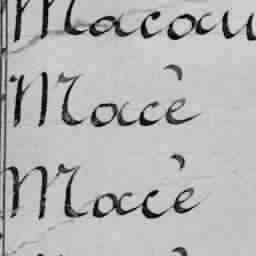 Macou
Macè
Macè